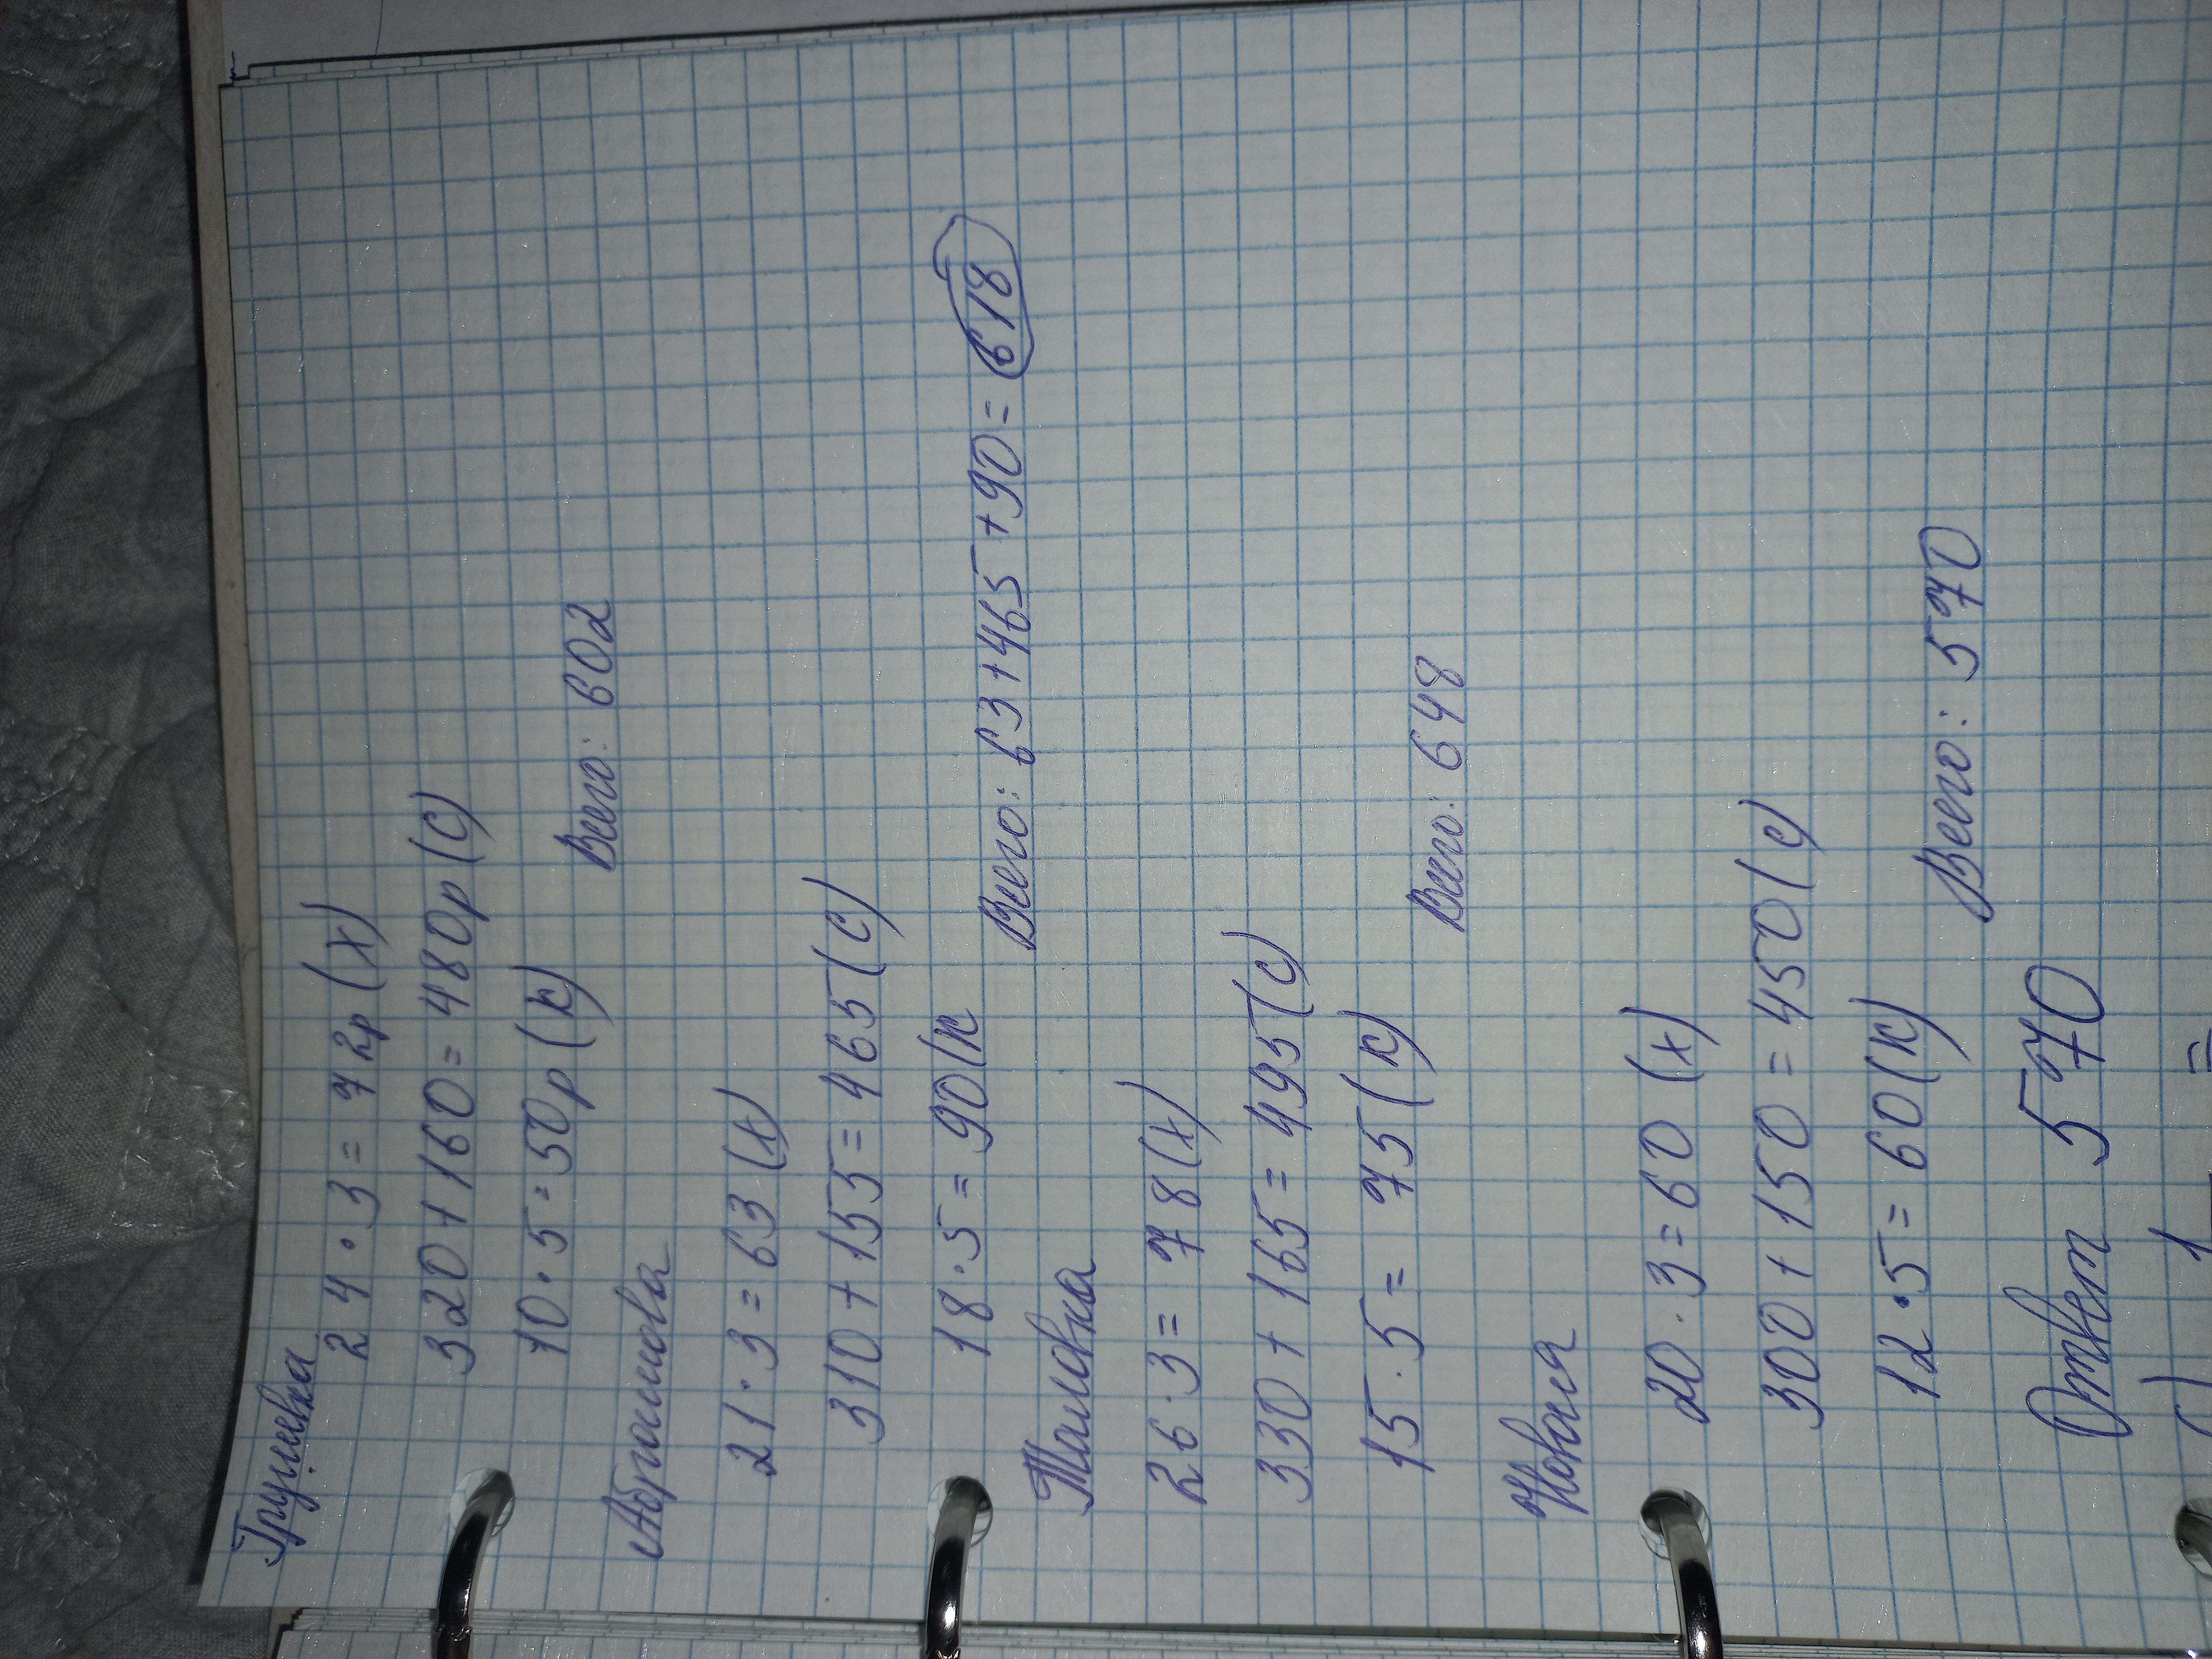 Грушевка
24·3=72р(х)
320+160=480р(с)
10·5=50р(к)
Всего: 602
Абрамова
21·3=63(х)
310+155=465(с)
18·5=90(к
Всего: 63+465+90=618
Таловка
26·3=78(х)
330+165=495(с)
15·5=75(к)
Всего: 648
Новая
20·3=60(х)
300+150=450(с)
12·5=60(к)
Всего: 570
Ответ 570